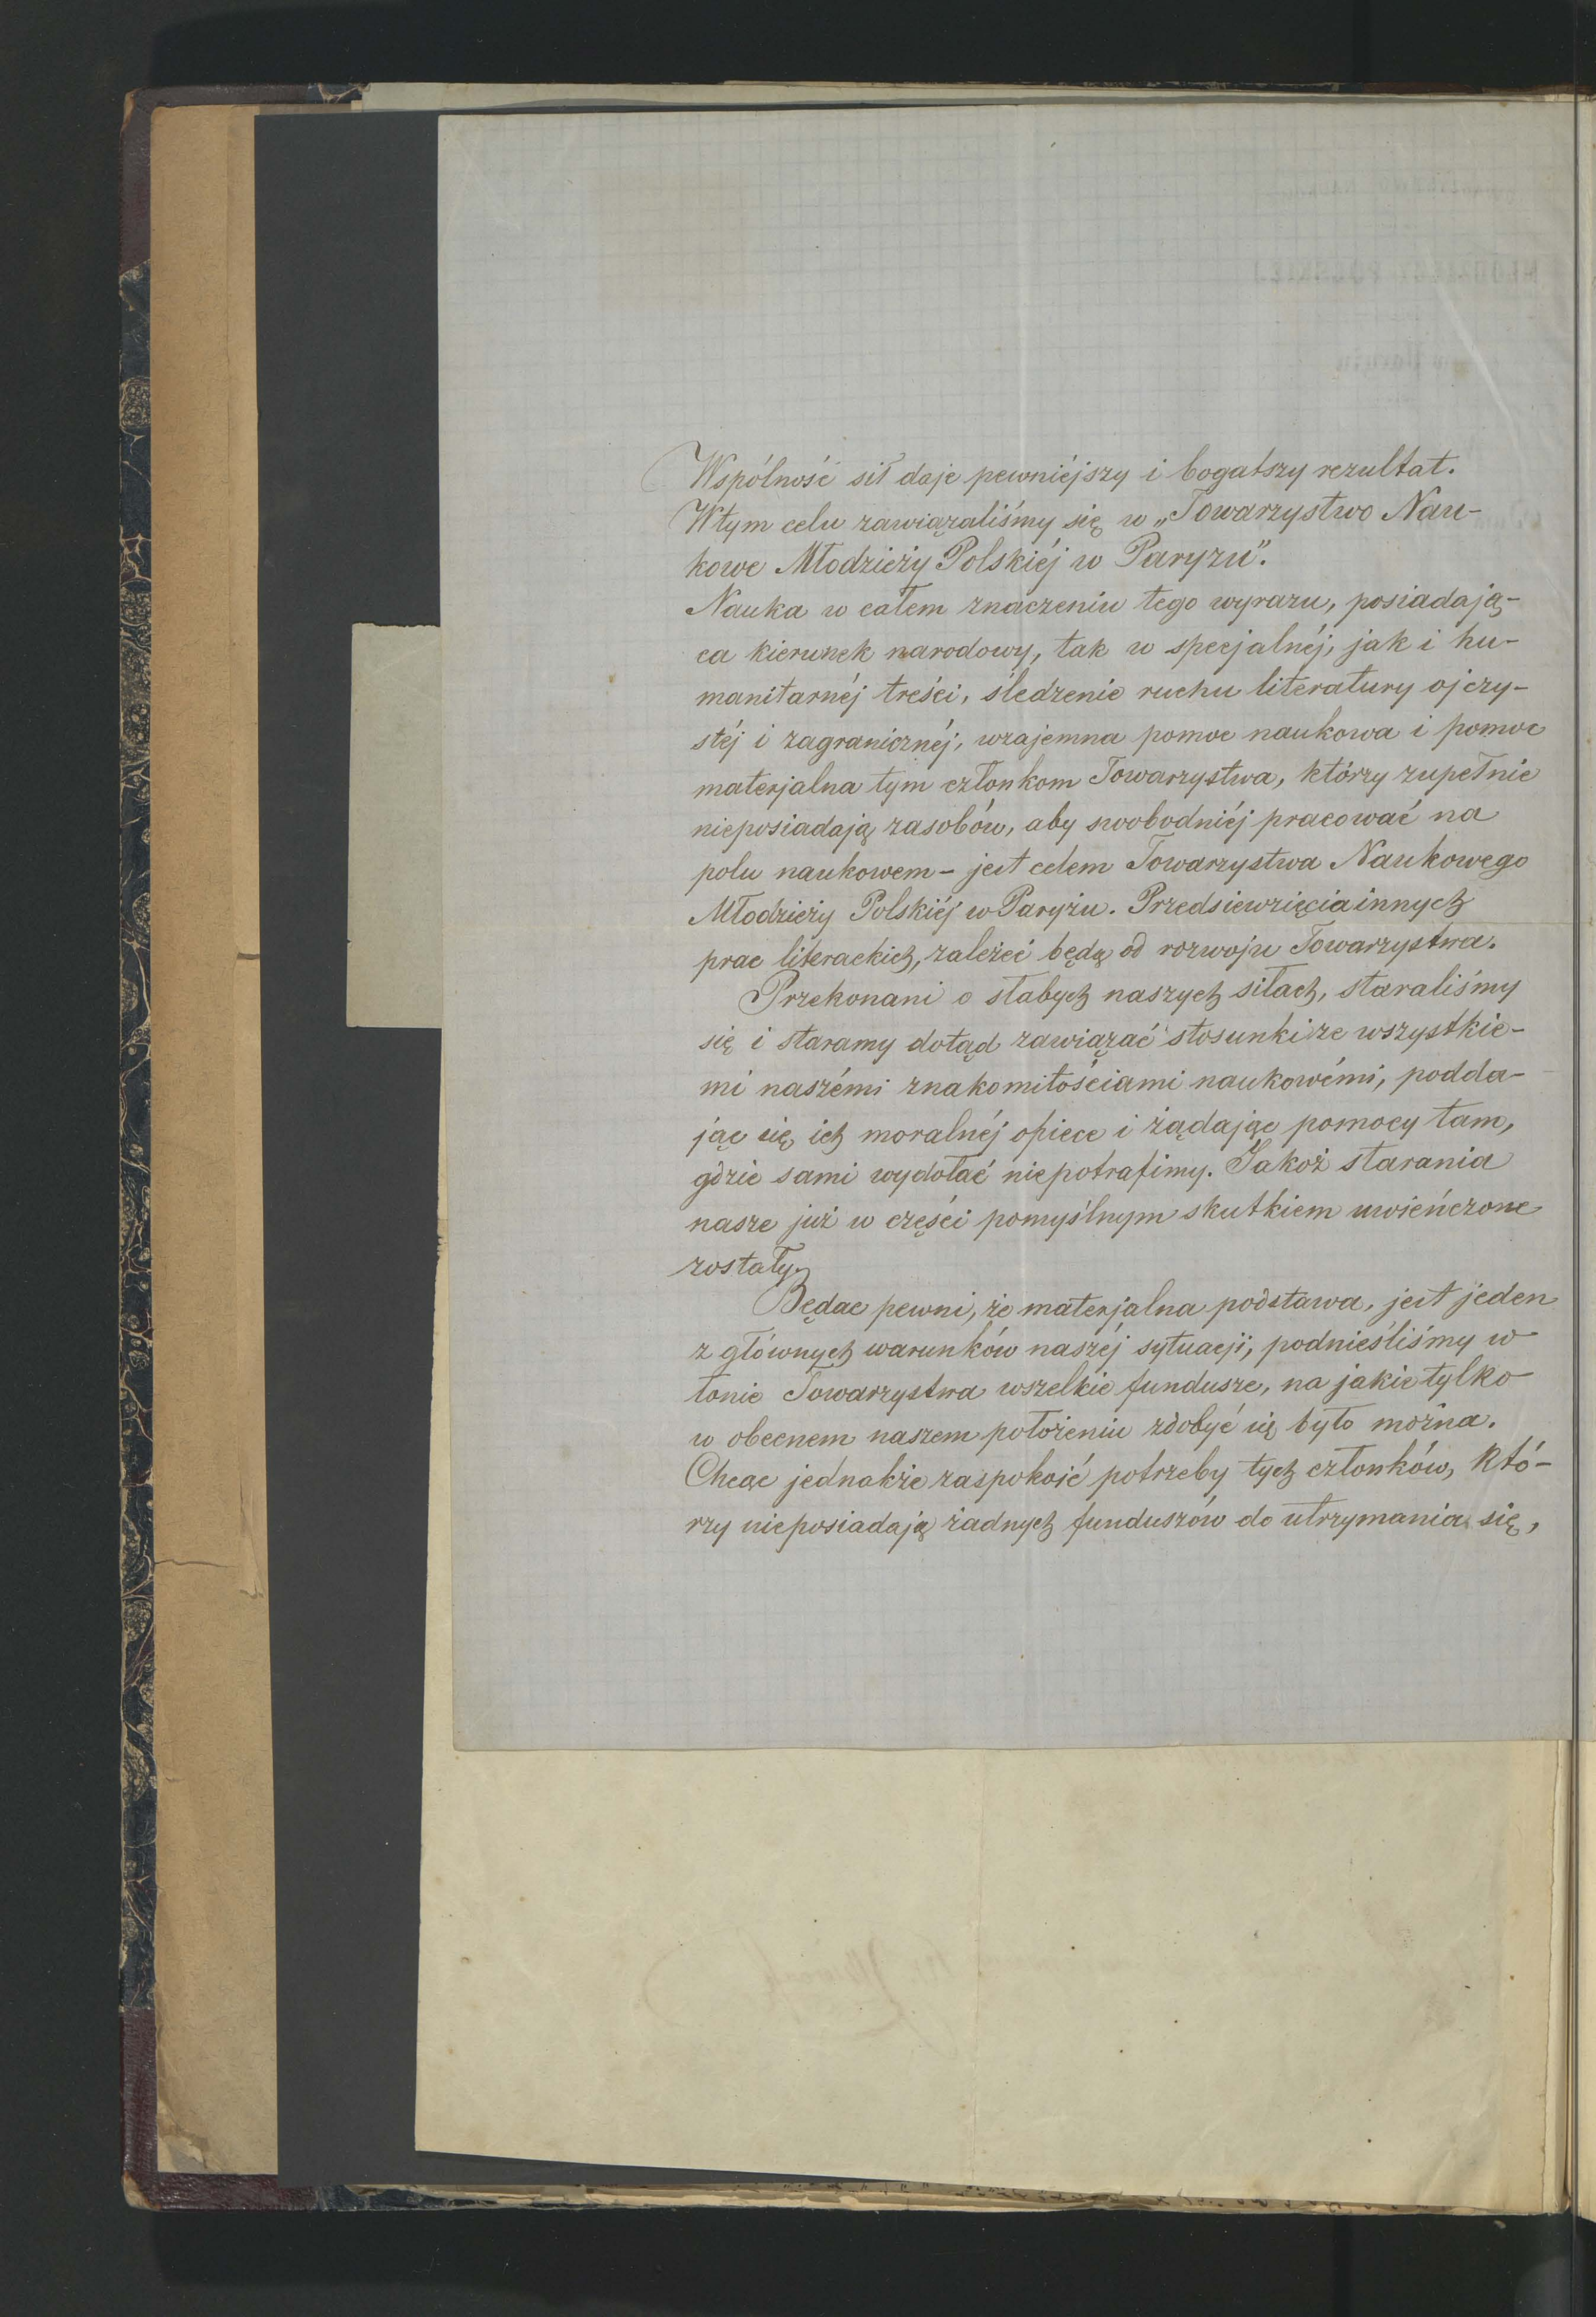 Wspólność sił daje pewniéjszy i bogatszy rezultat.
W tym celu zawiązaliśmy się w „Towarzystwo Nau-
kowe Młodzieży Polskiéj w Paryżu".
Nauka w całem znaczeniu tego wyrazu, posiadają-
ca kierunek narodowy, tak w specjalnéj, jak i hu-
manitarnéj treści, śledzenie ruchu literatury ojczy-
stéj i zagranicznéj, wzajemna pomoc naukowa i pomoc
materjalna tym członkom Towarzystwa, którzy zupełnie
nieposiadają zasobów, aby swobodniéj pracować na
polu naukowem – jest celem Towarzystwa Naukowego
Młodzieży Polskiéj w Paryżu. Przedsiewzięcia innych
prac literackich, zależeć będą od rozwoju Towarzystwa.
Przekonani o słabych naszych siłach, staraliśmy
się i staramy dotąd zawiązać stosunki ze wszystkie-
mi naszémi znakomitościami naukowémi, podda-
jąc się ich moralnéj opiece i żądając pomocy tam,
gdzie sami wydołać niepotrafimy. Jakoż starania
nasze już w części pomyślnym skutkiem uwieńczone
zostały.
Będac pewni, że materjalna podstawa, jest jeden
z głównych warunków naszéj sytuacji, podnieśliśmy w
łonie Towarzystwa wszelkie fundusze, na jakie tylko
w obecnem naszem położeniu zdobyć się było można.
Chcąc jednakże zaspokoić potrzeby tych członków, któ-
rzy nieposiadają żadnych funduszów do utrzymania się,